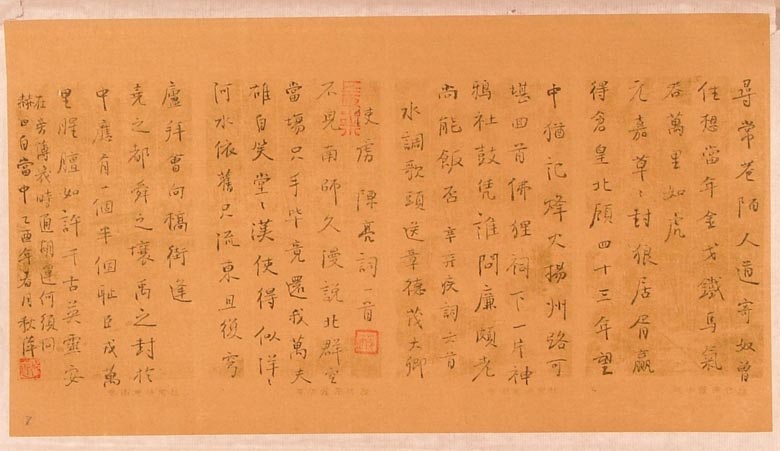 尋常巷陌人道寄奴曾
住想當年金戈鐵馬氣
吞萬里如虎
元嘉草〻封狼居胥贏
得倉皇北顧四十三年望
中猶記烽火揚洲路可
堪回首佛狸祠下一片神
鴉社鼓凭誰問廉頗老
尚能飯否 辛弃疾詞六首
水調歌頭送章德茂大卿
使虜 陳亮詞一首
不見南師久漫說北群空
當場只手畢竟還我萬夫
雄自笑堂〻漢使得似洋〻
河水依舊只流東且復穹
廬拜會向槁街逢
堯之都舜之壤禹之封於
中應有一個半個耻臣戎萬
里腥膻如許千古英靈安
在旁薄幾時通胡運何須問
赫日自當中 乙酉年春月秋萍